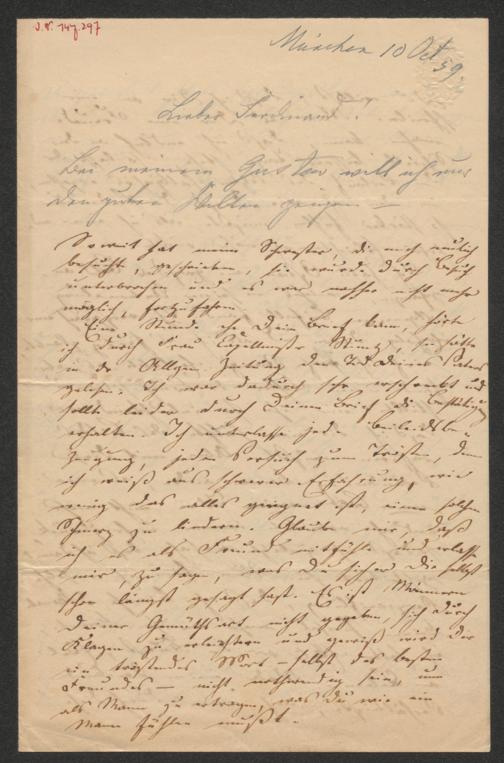 J.N. 147.297
München 10 Oct 59.
Lieber Ferdinand!
Bei meinem Gustav will ich nur
den guten Willen zeigen –
Soweit hat meine Schwester, die mich neulich
besucht, geschrieben, sie wurde durch Besuch
unterbrochen und es war nachher nicht mehr
möglich, fortzufahren.
Eine Stunde ehe Dein Brief kam, hörte
ich durch Frau Stuntz, sie hätte
in der Allgem. Zeitung den Tod Deines Vaters
gelesen. Ich war dadurch sehr erschreckt und
sollte leider durch Deinen Brief die Bestätigung
erhalten. Ich unterlasse jede Beileidsbe-
zeugung, jeden Versuch zum Trösten, denn
ich weiß aus schwerer Erfahrung, wie
wenig das alles geeignet ist, einen solchen
Schmerz zu lindern. Glaube mir, daß
ich es als Freund mitfühle und erlasse
mir, zu sagen, was Du sicher Dir selbst
schon längst gesagt hast. Es ist Männern
Deiner Gemüthsart nicht gegeben, sich durch
Klagen zu erleichtern und gewiß wird Dir
ein tröstendes Wort – selbst des besten
Freundes – nicht nothwendig sein, um
als Mann zu ertragen, was Du wie ein
Mann fühlen mußt.